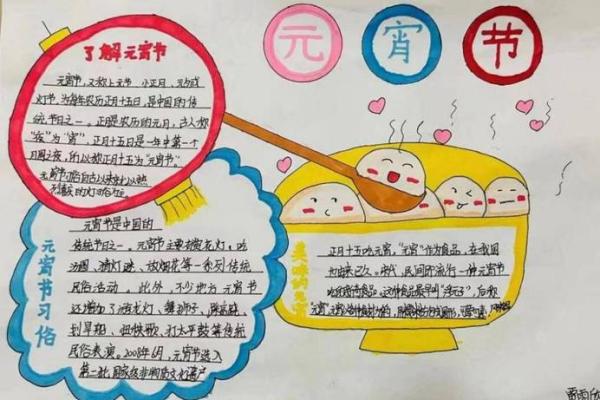 元宵节
了解元宵节
元宵节，又称上元节、小正月、元夕或
灯节，为每年农历正月十五日，是中国的传
统节日之一。正月是农历的元月，古人称
"夜"为"宵"，正月十五日是一年中第一个
月圆之夜，所以称正月十五为"元宵节"。
元宵节习俗自古以来就以热
的灯
元宵节习俗
元宵节是中国的
传统节日之一。元宵节主要有赏花灯、吃
汤圆、猜灯谜、放烟花等一系列传统
民俗活动。此外，不少地方元宵节
还增加了游龙灯、舞狮子、踩高跷、
划旱船、扭秧歌、打太平鼓等传统
民俗表演。2008年6月，元宵节选入
第二批国家级非物质文化遗产
美味的元宵
正月十五吃元宵，"元宵"作为食品，在我国
也由来已久。宋代，民间即流行一种元宵节
吃的新奇食品。这种食品，最早叫"浮元子"，后称
"元宵"